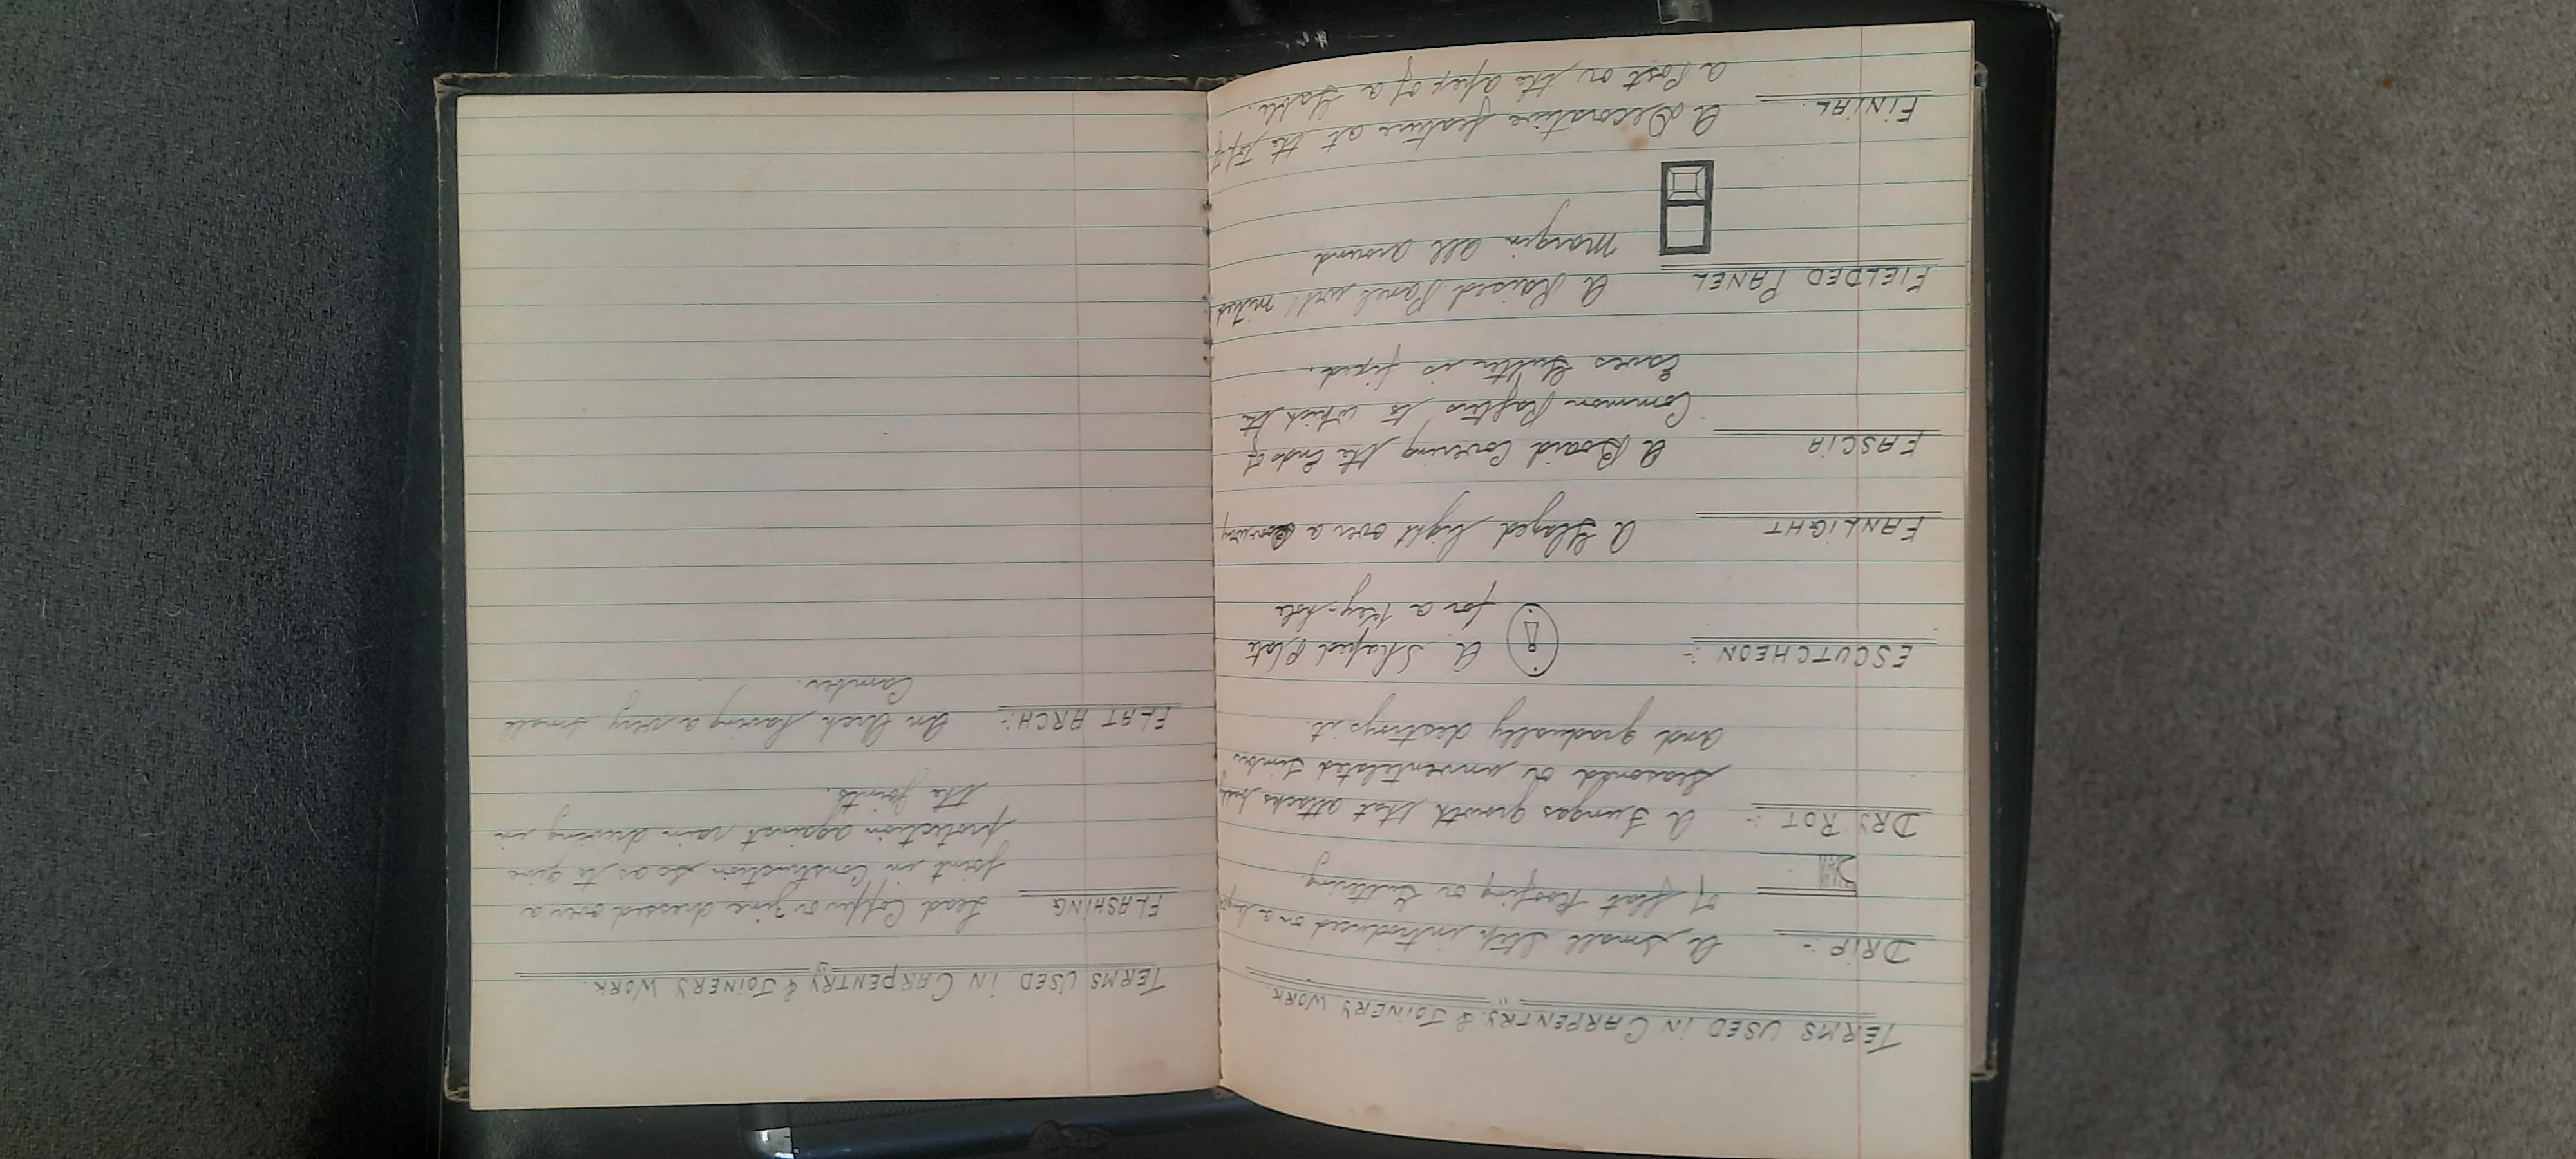 TERMS USED IN CARPENTRY & JOINERY WORK.
DRIP :- A small step introduced on a large
of flat Roofing or Guttering.
DRY ROT :- A Fungas growth that attacks badly
seasoned or unventelated timber
and gradually destroys it.
ESCUTCHEON :- A Shaped Plate
for a Key-hole
FANLIGHT A Glazed light over a Doorway
FASCIA A Board Covering the Ends of
Common Rafters to which the
Eaves Gutter is fixed.
FIELDED PANEL A Raised Panel with mitred
Margin all around
FINIAL. A Decorative feature at the top of
a Post or the Apex of a Gable.
TERMS USED IN CARPENTRY & JOINERY WORK.
FLASHING Lead Copper or Zinc dressed over a
joint in Construction so as to give
protection against rain driving in
the joints.
FLAT ARCH :- An Arch having a very small
Camber.